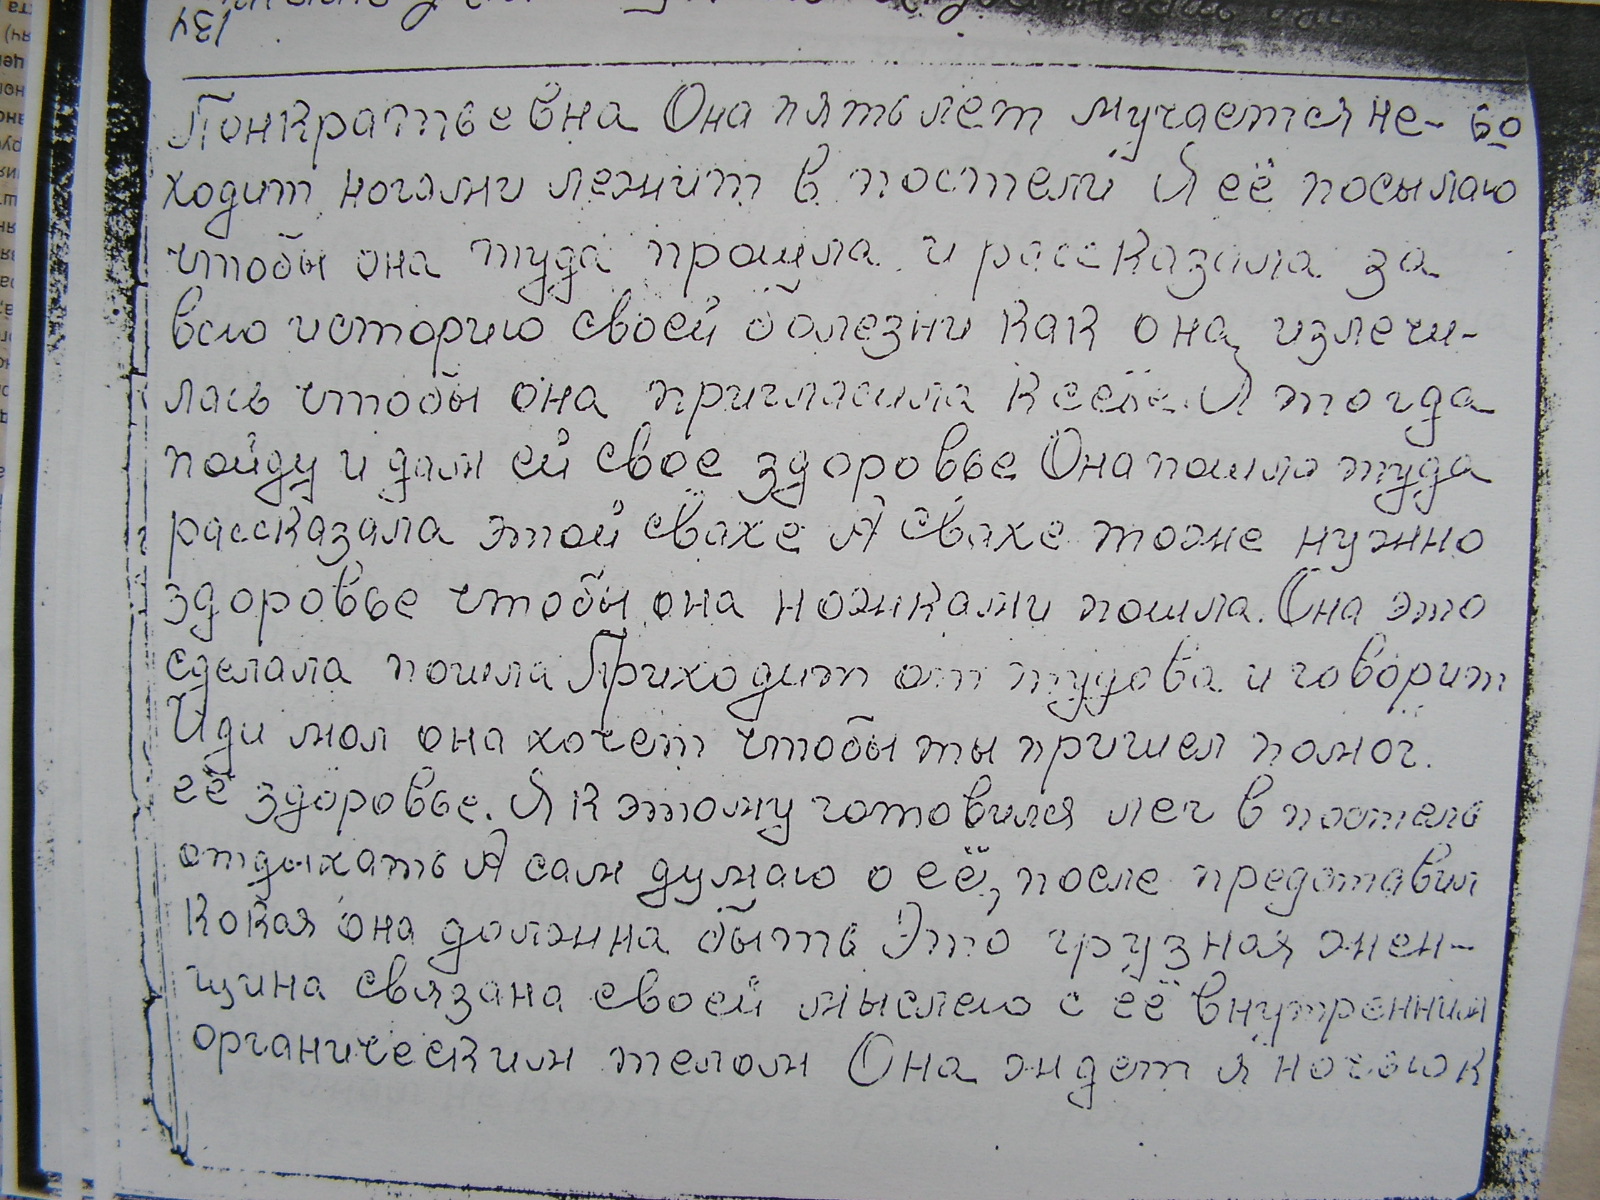 134
Понкратьевна Она пять лет мучается не- 60
ходит ногами лежит в постели Я её посылаю
чтобы она туда прошла и рассказала за
всю историю своей болезни как она излечи-
лась чтобы она пригласила к себе. Я тогда
пойду и дам ей свое здоровье Она пошла туда
рассказала этой свахе А свахе тоже нужно
здоровье чтобы она ножками пошла. Она это
сделала пошла Приходит от тудова и говорит
Иди мол она хочет чтобы ты пришел помог.
её здоровье. Я к этому готовился лег в постель
отдыхать А сам думаю о её, после представил
кокая она должна быть Это грузная жен-
щина связана своей мыслею с её внутренним
органическим телом Она ждет я ночью к